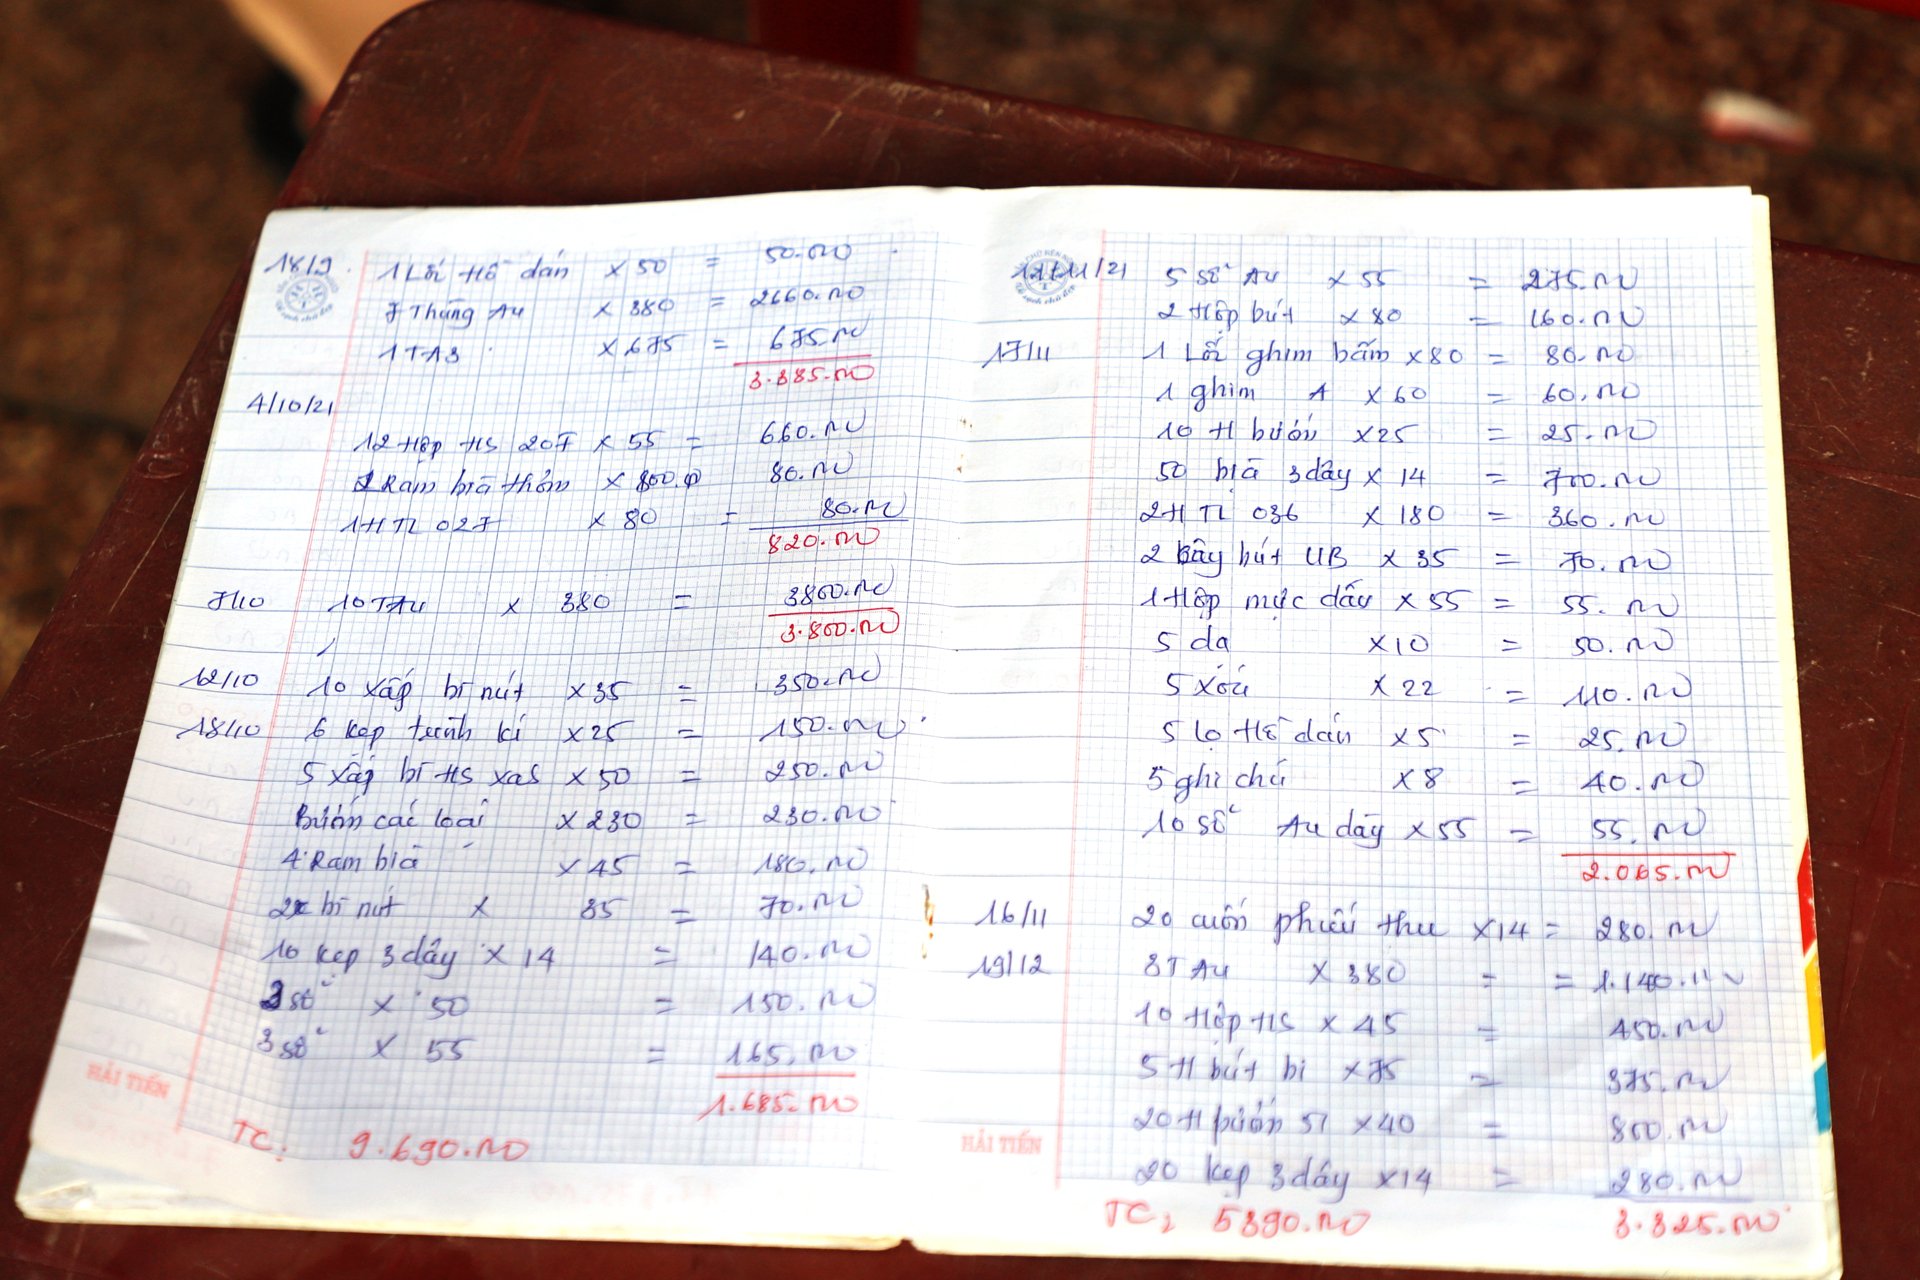 18/9. 1 Lối Hồ dán x 50 = 50.000
7 Thùng A4 x 380 = 2660.000
1 TA3 x 675 = 675.000
3.385.000
4/10/21
12 Hộp HS 207 x 55 = 660.000
1 Ram bìa thơm x 800.0 80.000
1 H TL 027 x 80 = 80.000
820.000
7/10 10 TA4 x 380 = 3800.000
3.800.000
12/10 10 xấp bì nút x 35 = 350.000
18/10 6 kẹp trình kí x 25 = 150.000
5 xấp bì HS x 50 = 250.000
Bướm các loại x 230 = 230.000
4 Ram bìa x 45 = 180.000
2x bì nút x 35 = 70.000
10 kẹp 3 dây x 14 = 140.000
3 sổ x 50 = 150.000
3 sổ x 55 = 165.000
1.685.000
HẢI TIẾN
TC: 9.690.000
11/11/21 5 sổ A4 x 55 = 275.000
2 Hộp bút x 80 = 160.000
17/11 1 Lối ghim bấm x 80 = 80.000
1 ghim A x 60 = 60.000
10 H bướm x 25 = 25.000
50 bìa 3 dây x 14 = 700.000
2 H TL 036 x 180 = 360.000
2 cây bút UB x 35 = 70.000
1 Hộp mực dấu x 55 = 55.000
5 dạ x 10 = 50.000
5 xóa x 22 = 110.000
5 lọ Hồ dán x 5 = 25.000
5 ghi chú x 8 = 40.000
10 sổ A4 dày x 55 = 55.000
2.065.000
16/11 20 cuốn phiếu thu x 14 = 280.000
19/12 3 T A4 x 380 = = 1.140.000
10 Hộp HS x 45 = 450.000
5 H bút bi x 75 = 375.000
20 H bướm 51 x 40 = 800.000
20 kẹp 3 dây x 14 = 280.000
HẢI TIẾN
TC: 5390.000 3.325.000